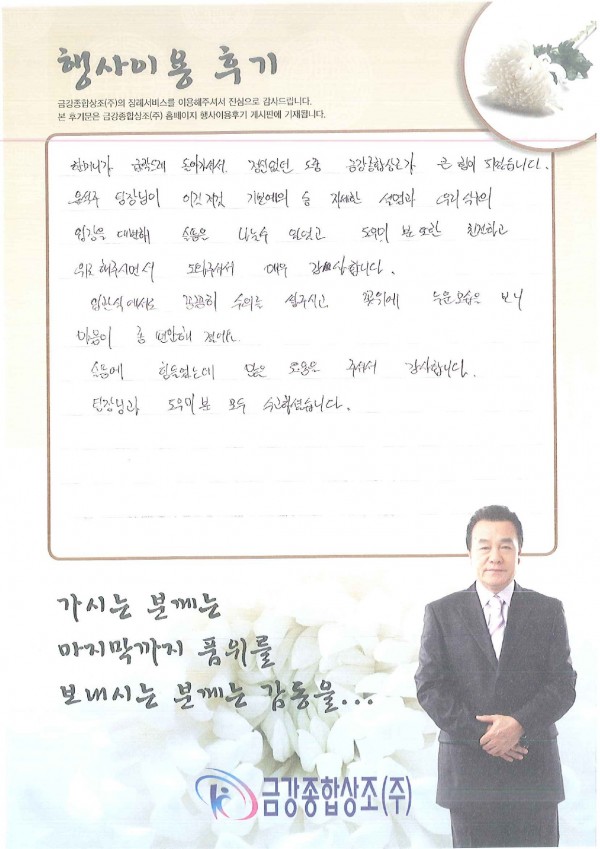 행사이용 후기
금강종합상조(주)의 장례서비스를 이용해주셔서 진심으로 감사드립니다.
본 후기문은 금강종합상조(주) 홈페이지 행사이용후기 게시판에 기재됩니다.
할머니가 돌아가셔서, 정신없던 도중 금강종합상조가 큰 힘이 되었습니다.
팀장님이 이것저것 자세한 설명과 우리 식구의
입장을 대변해 슬픔을 나눌수 있었고 도우미 분 또한 친절하고
위로해주시면서 도와주셔서 매우 감사합니다.
입관식에서도 꼼꼼히 수의를 입혀주시고, 꽃위에 누운모습을 보니
마음이 좀 편안해 졌어요.
슬픔에 힘들었는데 많은 도움을 주셔서 감사합니다.
팀장님과 도우미분 모두 수고하셨습니다.
가시는 분께는
마지막까지 품위를
보내시는 분께는 감동을...
금강종합상조(주)